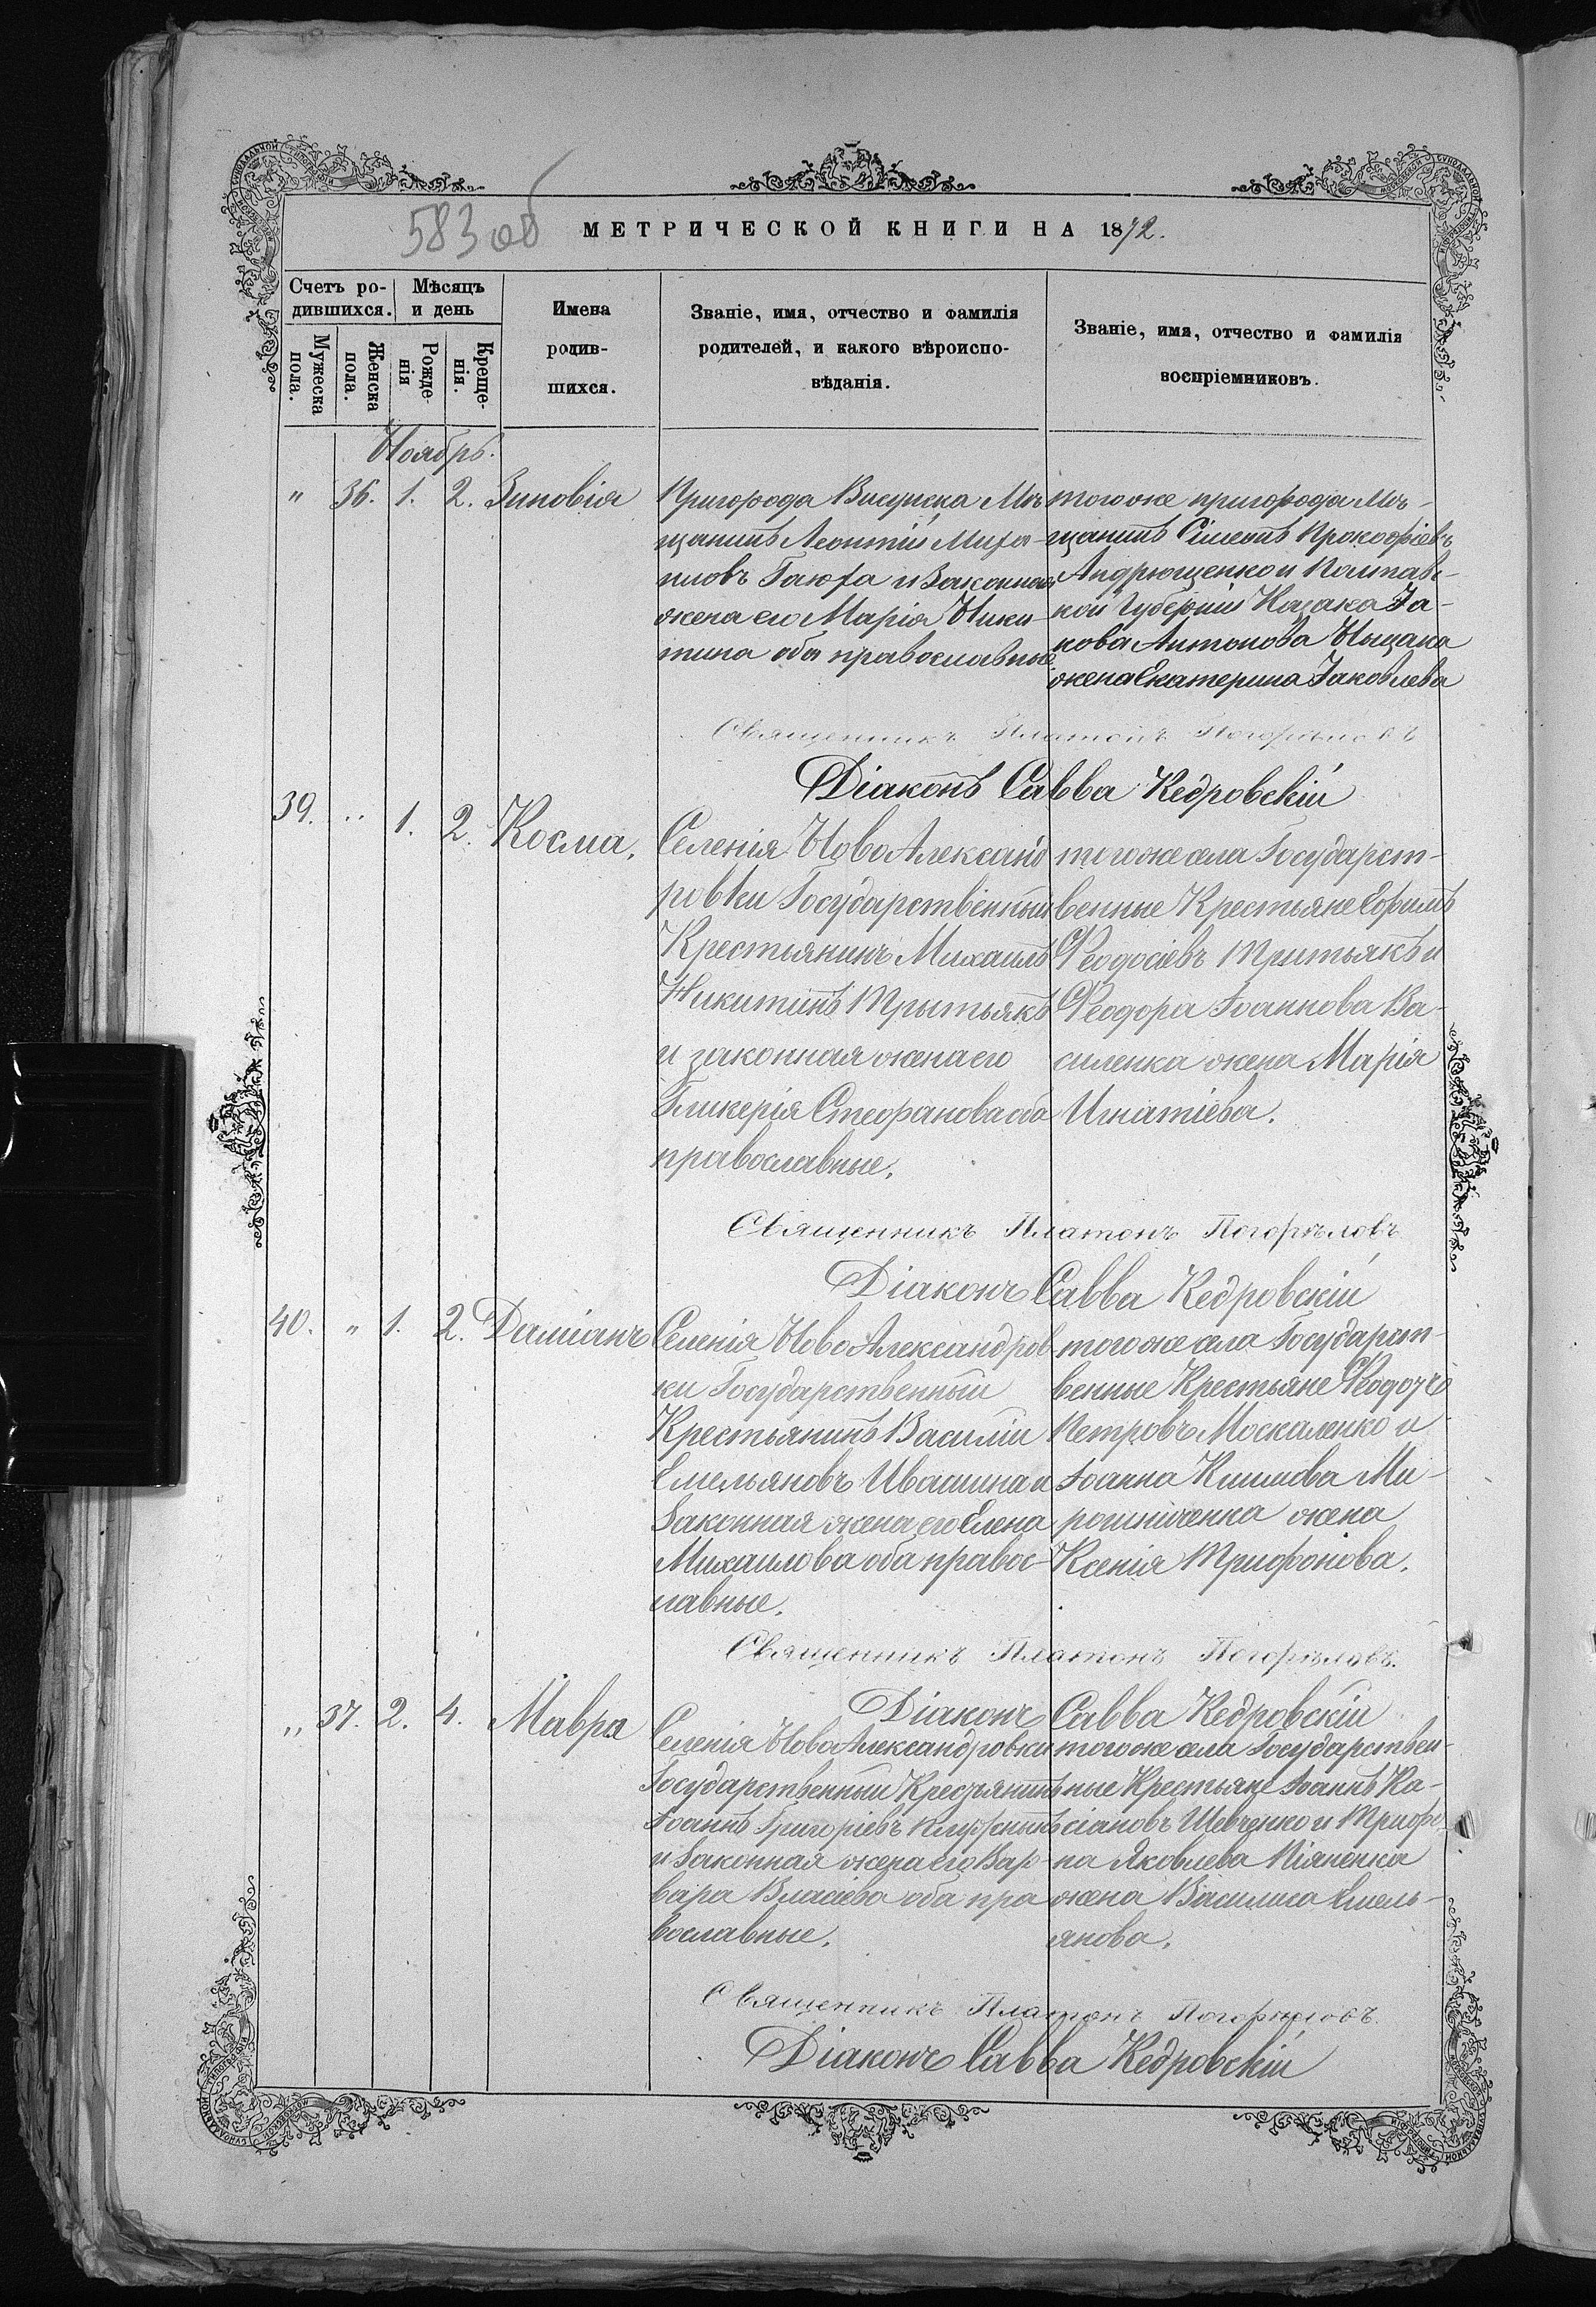 583 об
МЕТРИЧЕСКОЙ КНИГИ НА 1872.
Счетъ ро-
дившихся.
Мѣсяцъ
и день
Имена
родив-
шихся.
Званіе, имя, отчество и фамилія
родителей, и какого вѣроиспо-
вѣданія.
Званіе, имя, отчество и фамилія
воспріемниковъ.
Мужеска
пола.
Женска
пола.
Рожде-
нія
Креще-
нія.
Ноябрь.
" 36. 1. 2. Зиновія
Пригорода Висунска Мѣ
щанинъ Леонтій Миха-
иловъ Гаюха и Законная
жена его Марія Ники-
тина оба православные
тогоже пригорода Мѣ-
щанинъ Сімеонъ Прокофіевъ
Андрющенко и Полтавс-
кой Губерніи Казака Іа-
кова Антонова
жена Екатерина Іаковлева
Священникъ Платонъ Погорѣловъ
Діаконъ Савва Кедровскій
39. " 1. 2. Косма.
Селенія НовоАлександ
ровки Государственный
Крестьянинъ Михаилъ
Никитинъ Трытьякъ
и законная жена его
Гликерія Стефанова оба
православные.
тогоже села Государст-
венные Крестьяне Ефимъ
Феодосіевъ Трытьякъ и
Феодора Іоаннова Ва-
силенка жена Марія
Игнатіева.
Священникъ Платонъ Погорѣловъ
Діаконъ Савва Кедровскій
40. " 1. 2. Даміанъ
Селенія НовоАлександров-
ки Государственный
Крестьянинъ Василій
Емельяновъ Ивашина и
Законная жена его Елена
Михаилова оба правос-
лавные.
тогоже села Государст-
венные Крестьяне
Петровъ Москаленко и
Іоанна Климова Ми-
рошніченка жена
Ксенія Трифонова.
Священникъ Платонъ Погорѣловъ.
Діаконъ Савва Кедровскій
" 37. 2. 4. Мавра
Селенія НовоАлександровки
Государственный Крестьянинъ
Іоаннъ Григоріевъ
и Законная жена его Вар-
вара Власіева оба пра
вославные.
тогоже села Государствен-
ные Крестьяне Іоаннъ Ка-
сіановъ Шевченко и Трифо-
на Яковлева Піяненка
жена Василиса Емель-
янова.
Священникъ Платонъ Погорѣловъ.
Діаконъ Савва Кедровскій